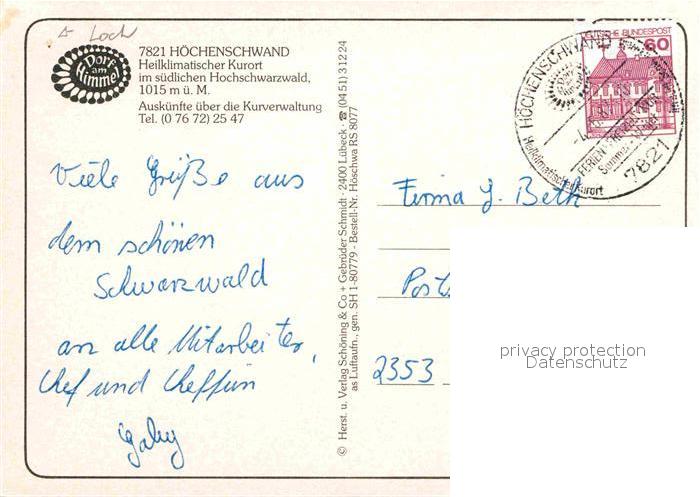 Loch
Dorf
am
Himmel
7821 HÖCHENSCHWAND
Heilklimatischer Kurort
im südlichen Hochschwarzwald,
1015 m ü. M.
Auskünfte über die Kurverwaltung
Tel. (0 76 72) 25 47
Viele Grüße aus
dem schönen
Schwarzwald
an alle Mitarbeiter,
Chef und Cheffin
Gaby
© Herst. u. Verlag Schöning & Co + Gebrüder Schmidt · 2400 Lübeck · ☎ (04 51) 3 12 24
as Luftaufn., gen. SH 1-80779 - Bestell-Nr. Höschwa RS 8077
DEUTSCHE BUNDESPOST
60
HÖCHENSCHWAND
Dorf
am
Himmel
FERIEN
Sommer
Heilklimatischer Kurort
7821
Firma J. Beth
Post
2353
privacy protection
Datenschutz